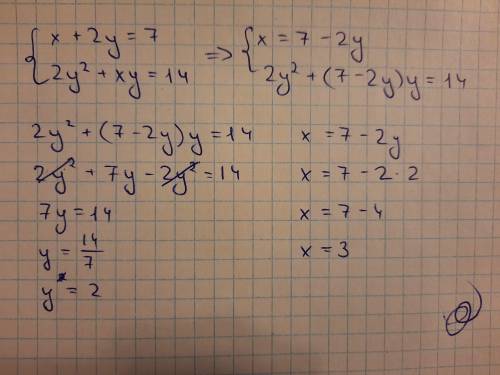 x + 2y = 7
2y² + xy = 14
=> x = 7 - 2y
2y² + (7 - 2y)y = 14
2y² + (7 - 2y)y = 14
2y² + 7y - 2y² = 14
7y = 14
y = 14/7
y = 2
x = 7 - 2y
x = 7 - 2 · 2
x = 7 - 4
x = 3